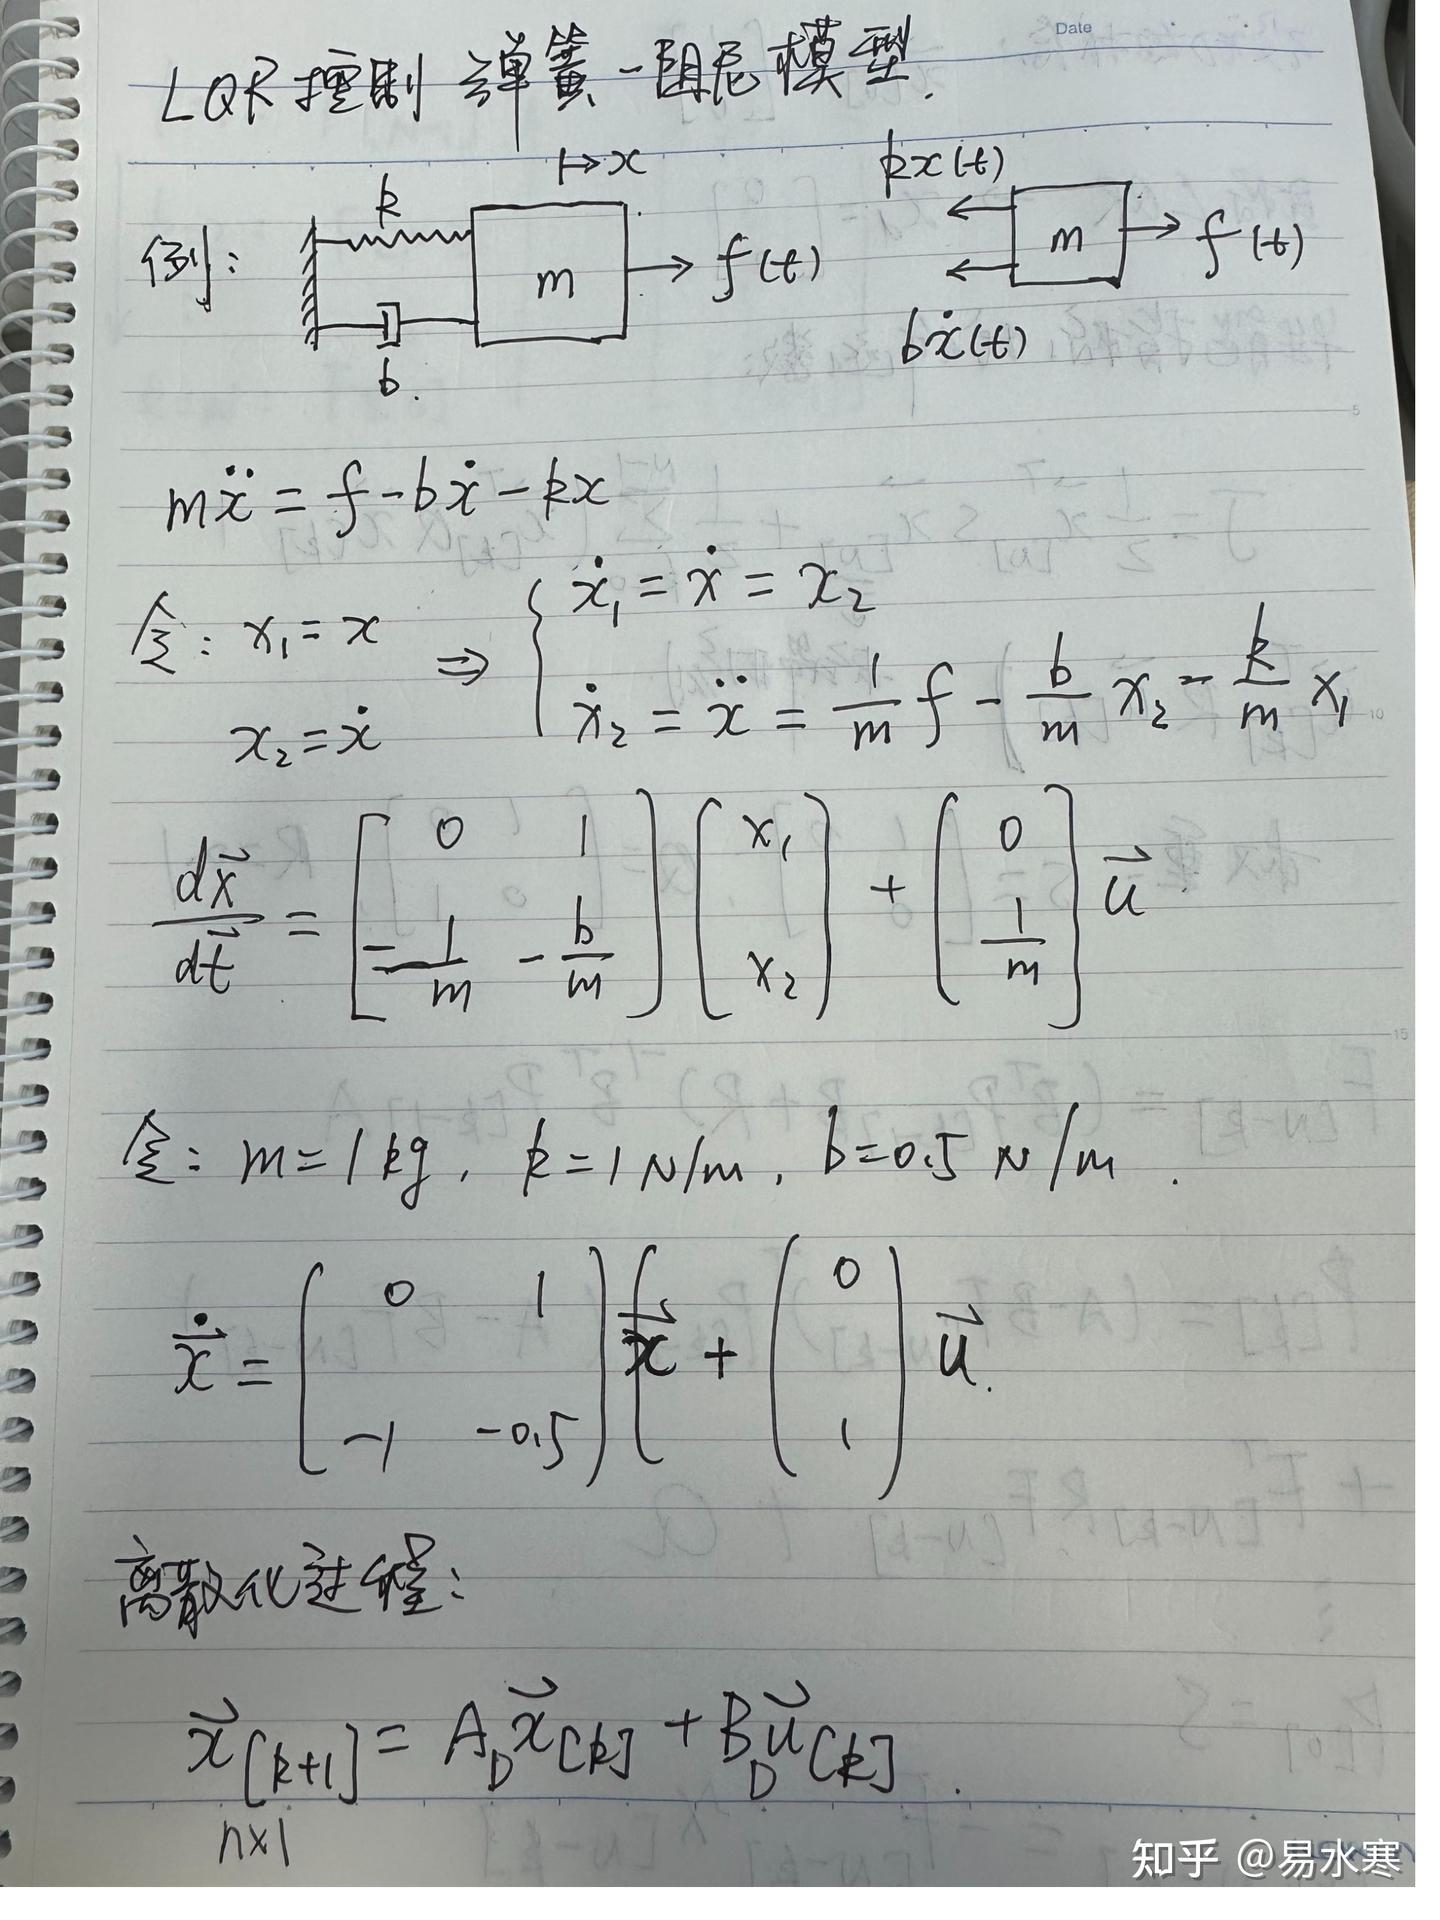 Date
LQR控制 弹簧-阻尼模型.
例: k b. m ↦x f(t) kx(t) bẋ(t) m f(t)
5
mẍ = f - bẋ - kx
令: x₁ = x ⇒ { ẋ₁ = ẋ = x₂
x₂ = ẋ ẋ₂ = ẍ = 1/m f - b/m x₂ - k/m x₁
10
dx⃗/dt⃗ = [0 1; -1/m -b/m] [x₁; x₂] + [0; 1/m] u⃗
15
令: m = 1 kg, k = 1 N/m, b = 0.5 N/m.
ẋ⃗ = [0 1; -1 -0.5] x⃗ + [0; 1] u⃗.
离散化过程:
x⃗[k+1] = A_D x⃗[k] + B_D u⃗[k].
n×1
知乎 @易水寒